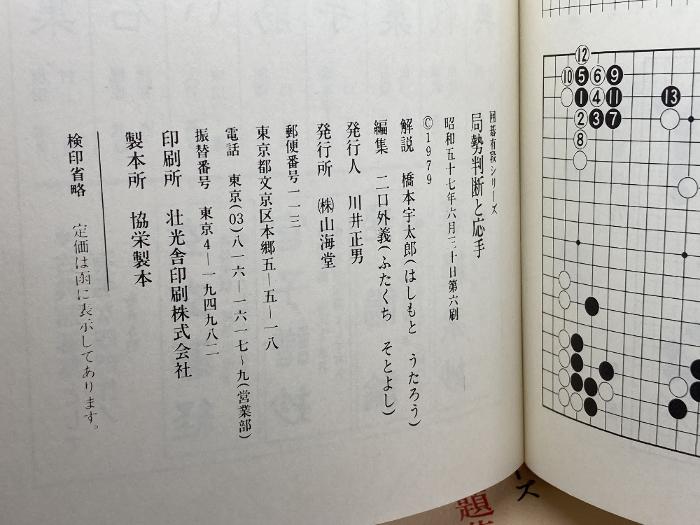 囲碁有段シリーズ
局勢判断と応手
昭和五十七年六月三十日第六刷
©1979
解説 橋本宇太郎(はしもと うたろう)
編集 二口外義(ふたくち そとよし)
発行人 川井正男
発行所 ㈱山海堂
郵便番号一一三
東京都文京区本郷五—五—一八
電話 東京(03)八一六—一六一七~九(営業部)
振替番号 東京4—一九四九八二
印刷所 壮光舎印刷株式会社
製本所 協栄製本
検印省略 定価は函に表示してあります。
⑫
⑩❺⑥❾
❶④⓫
②❸❼
⑧
⓭
題
ス